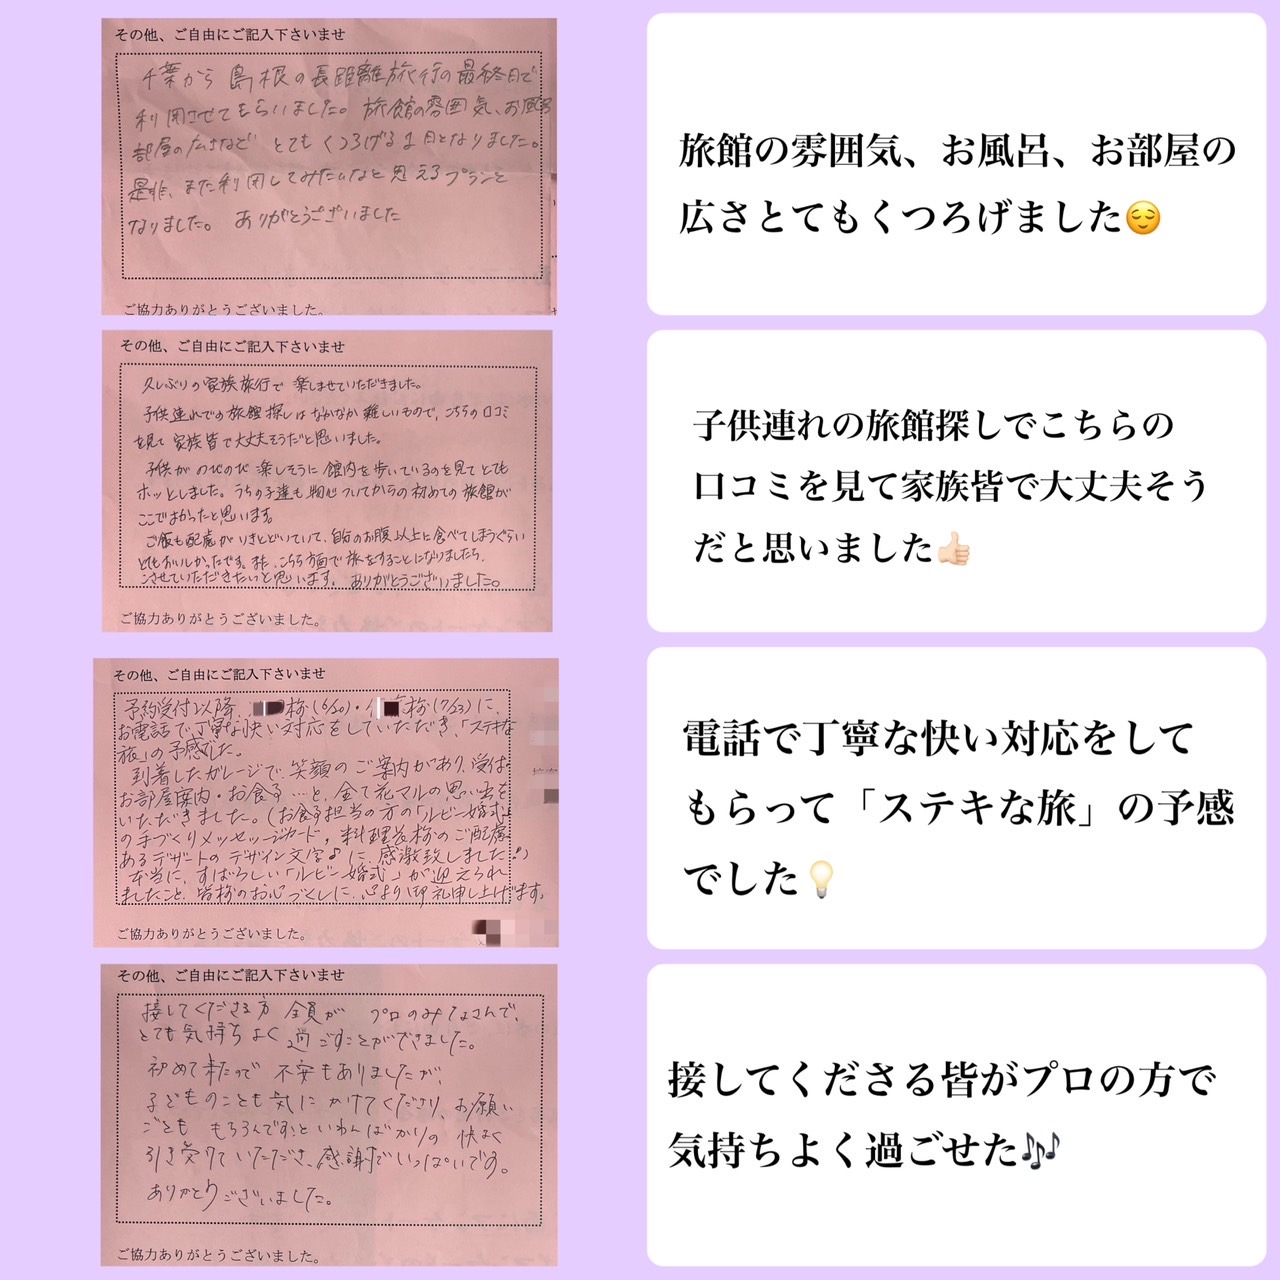 その他、ご自由にご記入下さいませ
千葉から 島根の長距離旅行の最終日で
利用させてもらいました。旅館の雰囲気、お風呂
部屋の広さなど とてもくつろげる1日となりました。
是非、また利用してみたいなと思えるプランと
なりました。ありがとうございました
ご協力ありがとうございました。
旅館の雰囲気、お風呂、お部屋の
広さとてもくつろげました😌
その他、ご自由にご記入下さいませ
久しぶりの家族旅行で楽しませていただきました。
子供連れでの旅館探しはなかなか難しいもので、こちらの口コミ
を見て家族皆で大丈夫そうだと思いました。
子供がのびのび楽しそうに館内を歩いているのを見てとても
ホッとしました。うちの子達も物心ついてからの初めての旅館が
ここでよかったと思います。
ご飯も配慮がいきとどいていて、自分のお腹以上に食べてしまうぐらい
とてもおいしかったです。また、こちら方面で旅をすることになりましたら、
こさせていただきたいと思います。ありがとうございました。
ご協力ありがとうございました。
子供連れの旅館探しでこちらの
口コミを見て家族皆で大丈夫そう
だと思いました👍🏻
その他、ご自由にご記入下さいませ
予約受付以降、様(6/20)・様(7/23)に、
お電話で丁寧な快い対応をしていただき、「ステキな
旅」の予感でした。
到着したガレージで、笑顔のご案内があり、受付
お部屋案内・お食事…と、全て花マルの思い出を
いただきました。(お食事担当の方の「ルビー婚式」
の手づくりメッセージカード、料理長様のご配慮
あるデザートのデザイン文字♪に、感激致しました♪)
本当に、すばらしい「ルビー婚式」が迎えられ
ましたこと、皆様のお心づくしに、心より御礼申し上げます。
ご協力ありがとうございました。
電話で丁寧な快い対応をして
もらって「ステキな旅」の予感
でした💡
その他、ご自由にご記入下さいませ
接してくださる方 全員が プロのみなさんで、
とても気持ちよく過ごすことができました。
初めて来たので 不安もありましたが、
子どものことも気にかけてくださり、お願い
ごとも もちろんですといわんばかりの 快よく
引き受けていただき、感謝でいっぱいです。
ありがとうございました。
ご協力ありがとうございました。
接してくださる皆がプロの方で
気持ちよく過ごせた🎶